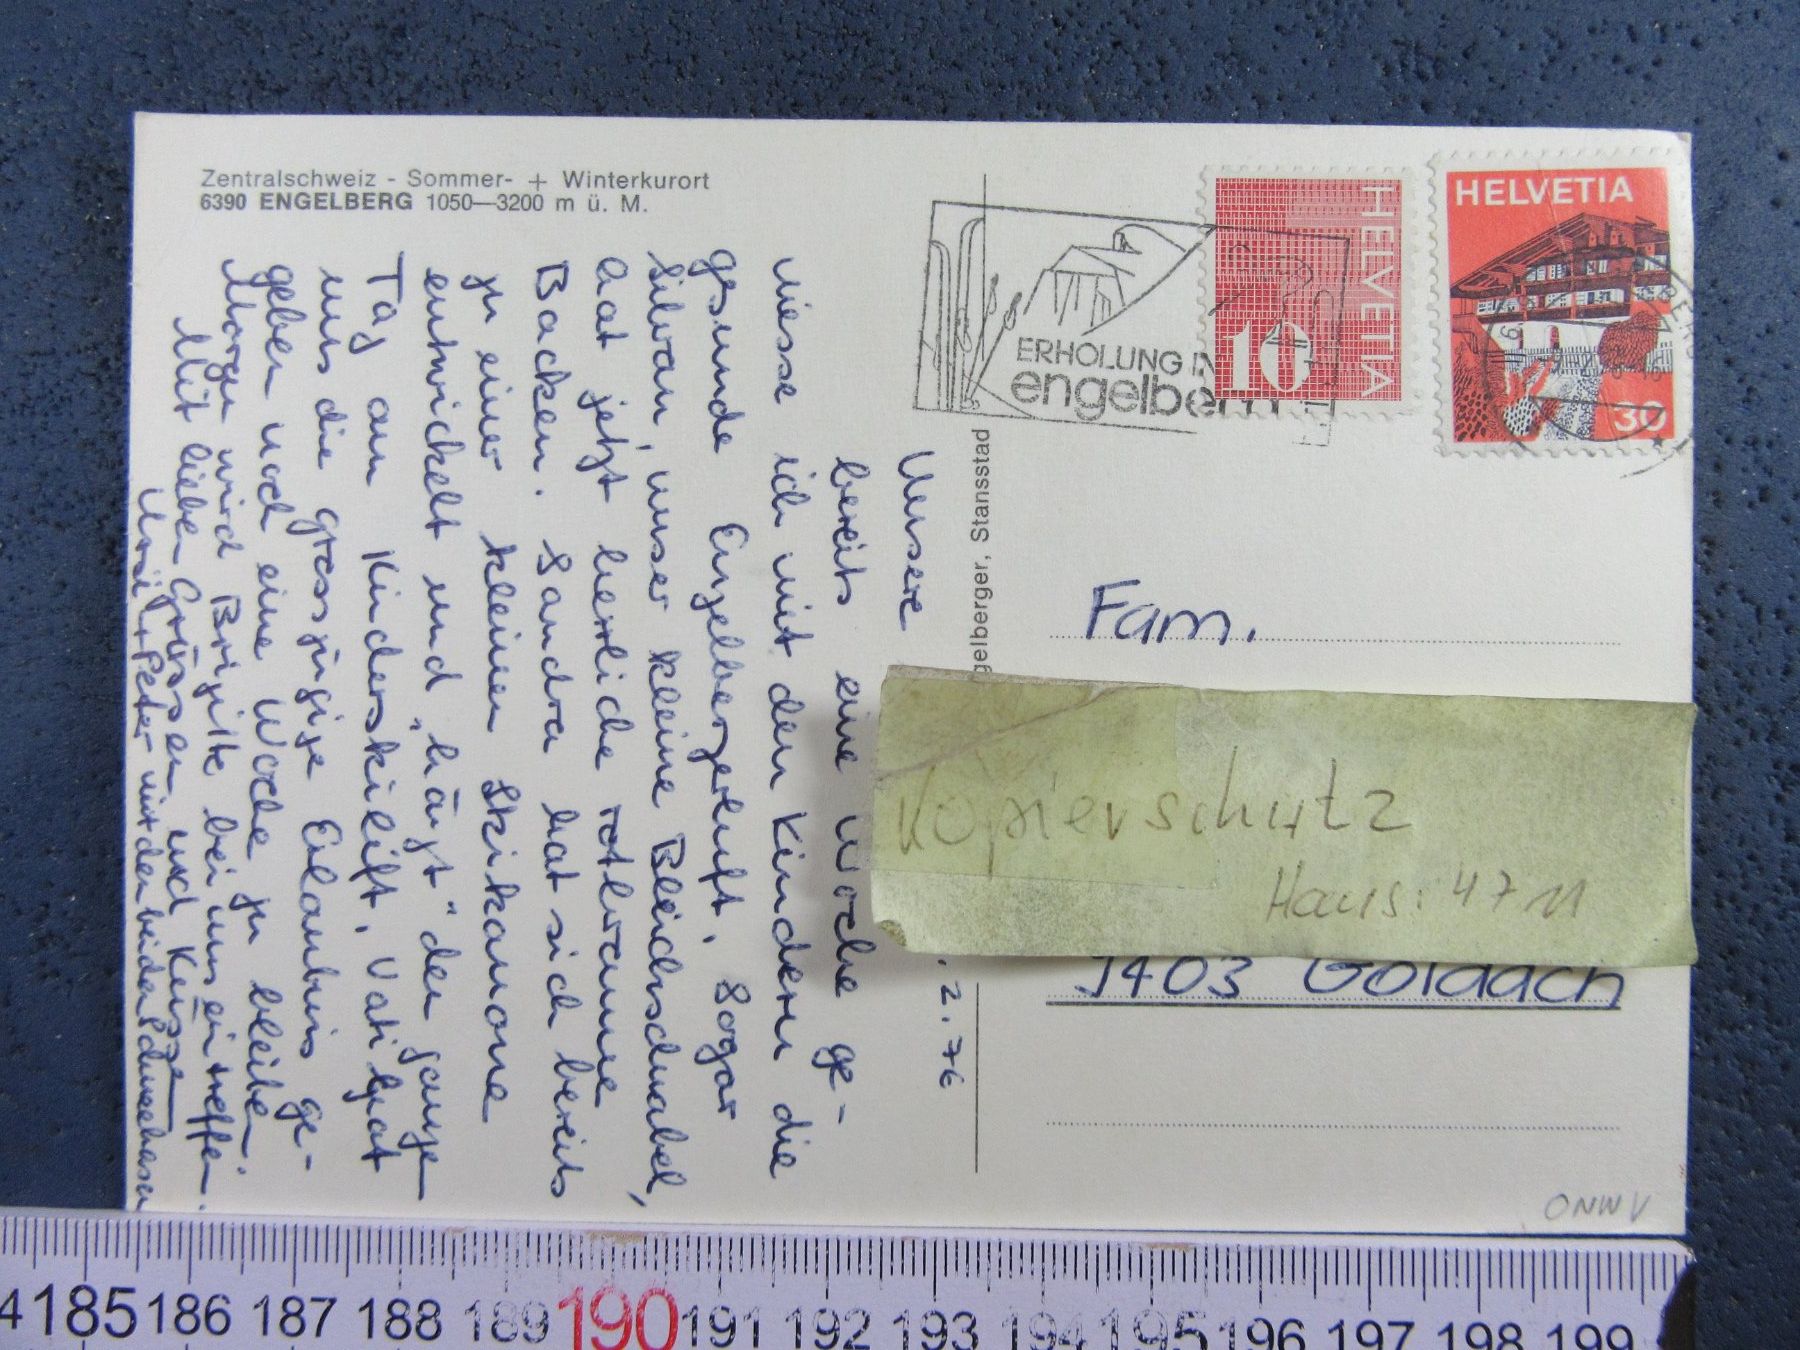 Zentralschweiz - Sommer- + Winterkurort
6390 ENGELBERG 1050—3200 m ü. M.
ERHOLUNG IN
engelberg
HELVETIA
10
HELVETIA
30
gelberger, Stansstad
. 2. 76
Unsere
bereits eine Woche ge-
niesse ich mit den Kindern die
gesunde Engelbergerluft. Sogar
Silvan, unser kleine Bleichschnabel,
hat jetzt herrliche rotbraune
Backen. Sandra hat sich bereits
zu einer kleinen Skikanone
entwickelt und "hägt" den ganzen
Tag am Kinderskilift. Vati hat
uns die grosszügige Erlaubnis ge-
geben noch eine Woche zu bleiben.
Morgen wird Brigitte bei uns eintreffen.
Mit lieben Grüssen und
Peter mit den beiden Schneehasen
Fam.
Kopierschutz
Haus: 4711
9403 Goldach
ONWV
185 186 187 188 189 190 191 192 193 194 195 196 197 198 199